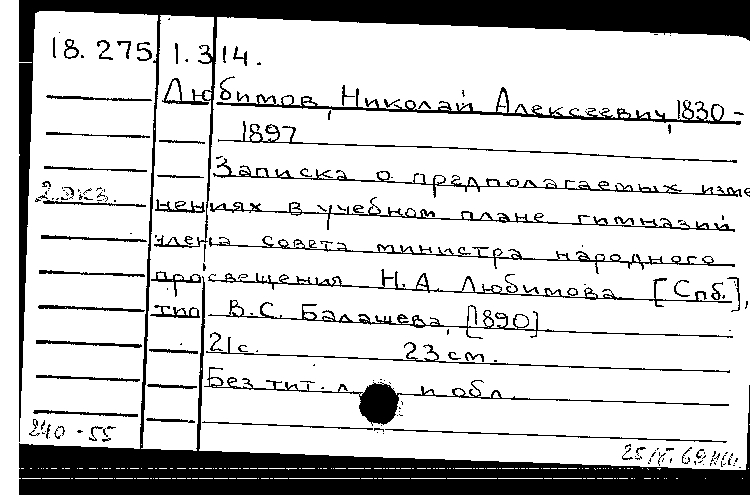 18.275.1.314.
Любимов, Николай Алексеевич, 1830-
1897
Записка о предполагаемых изме
2 экз.
нениях в учебном плане гимназий
члена совета министра народного
просвещения Н.А. Любимова. [Спб.],
тип. В.С. Балашева, [1890].
21с. 23см.
Без тит. л. и обл.
240-55
25/